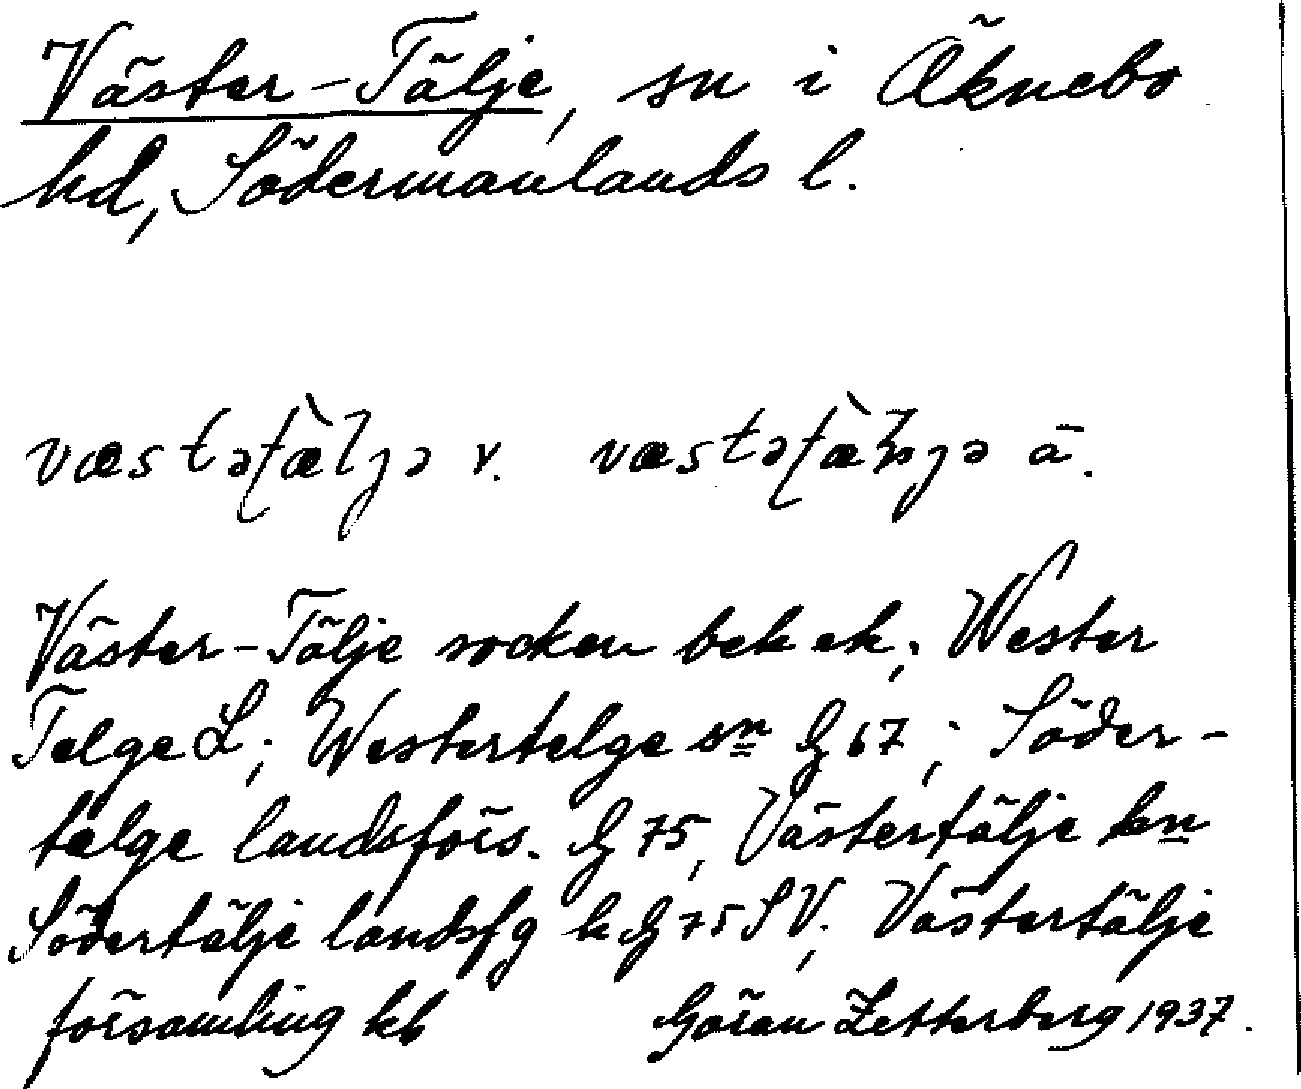 Väster-Tälje, sn i Öknebo
hd, Södermanlands l.
væstətæ̀ljə v. væstətæ̀ljə ä.
Väster-Tälje socken bek ek; Wester
Telge L; Westertelge sn Gg 67; Söder-
telge landsförs. Gg 75, Västertälje kn
Södertälje landsfg k Gg 75 SV; Västertälje
församling kb Göran Zetterberg 1937.